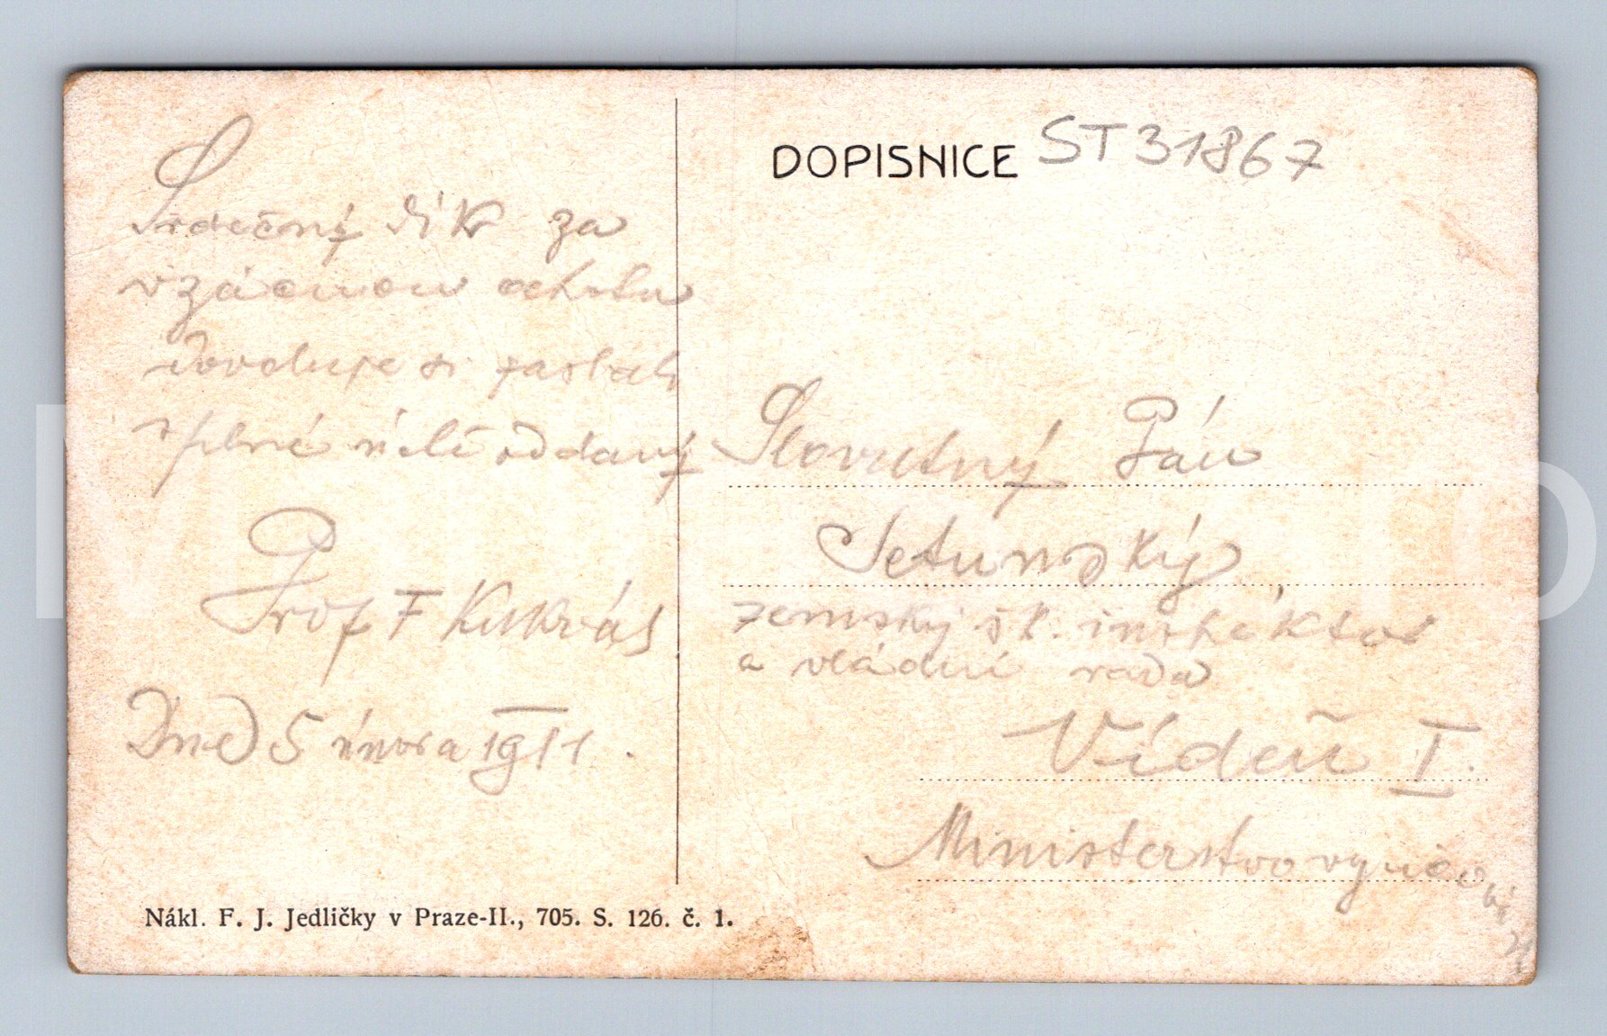 DOPISNICE ST31867
Srdečný dík za
vzácnou ochotu
dovoluje si zaslati
úplně oddaný
Prof F Kukrál
Dne 5 února 1911.
Nákl. F. J. Jedličky v Praze-II., 705. S. 126. č. 1.
Slovutný Pán
Setunský
zemský šk. inspektor
a vládní rada
Vídeň I.
Ministerstvo vyučo